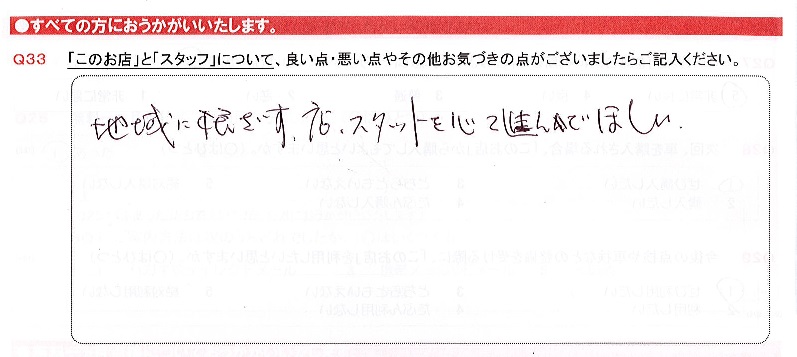 ●すべての方におうかがいいたします。
Q33 「このお店」と「スタッフ」について、良い点・悪い点やその他お気づきの点がございましたらご記入ください。
地域に根ざす、店、スタッフを心で進んでほしい.